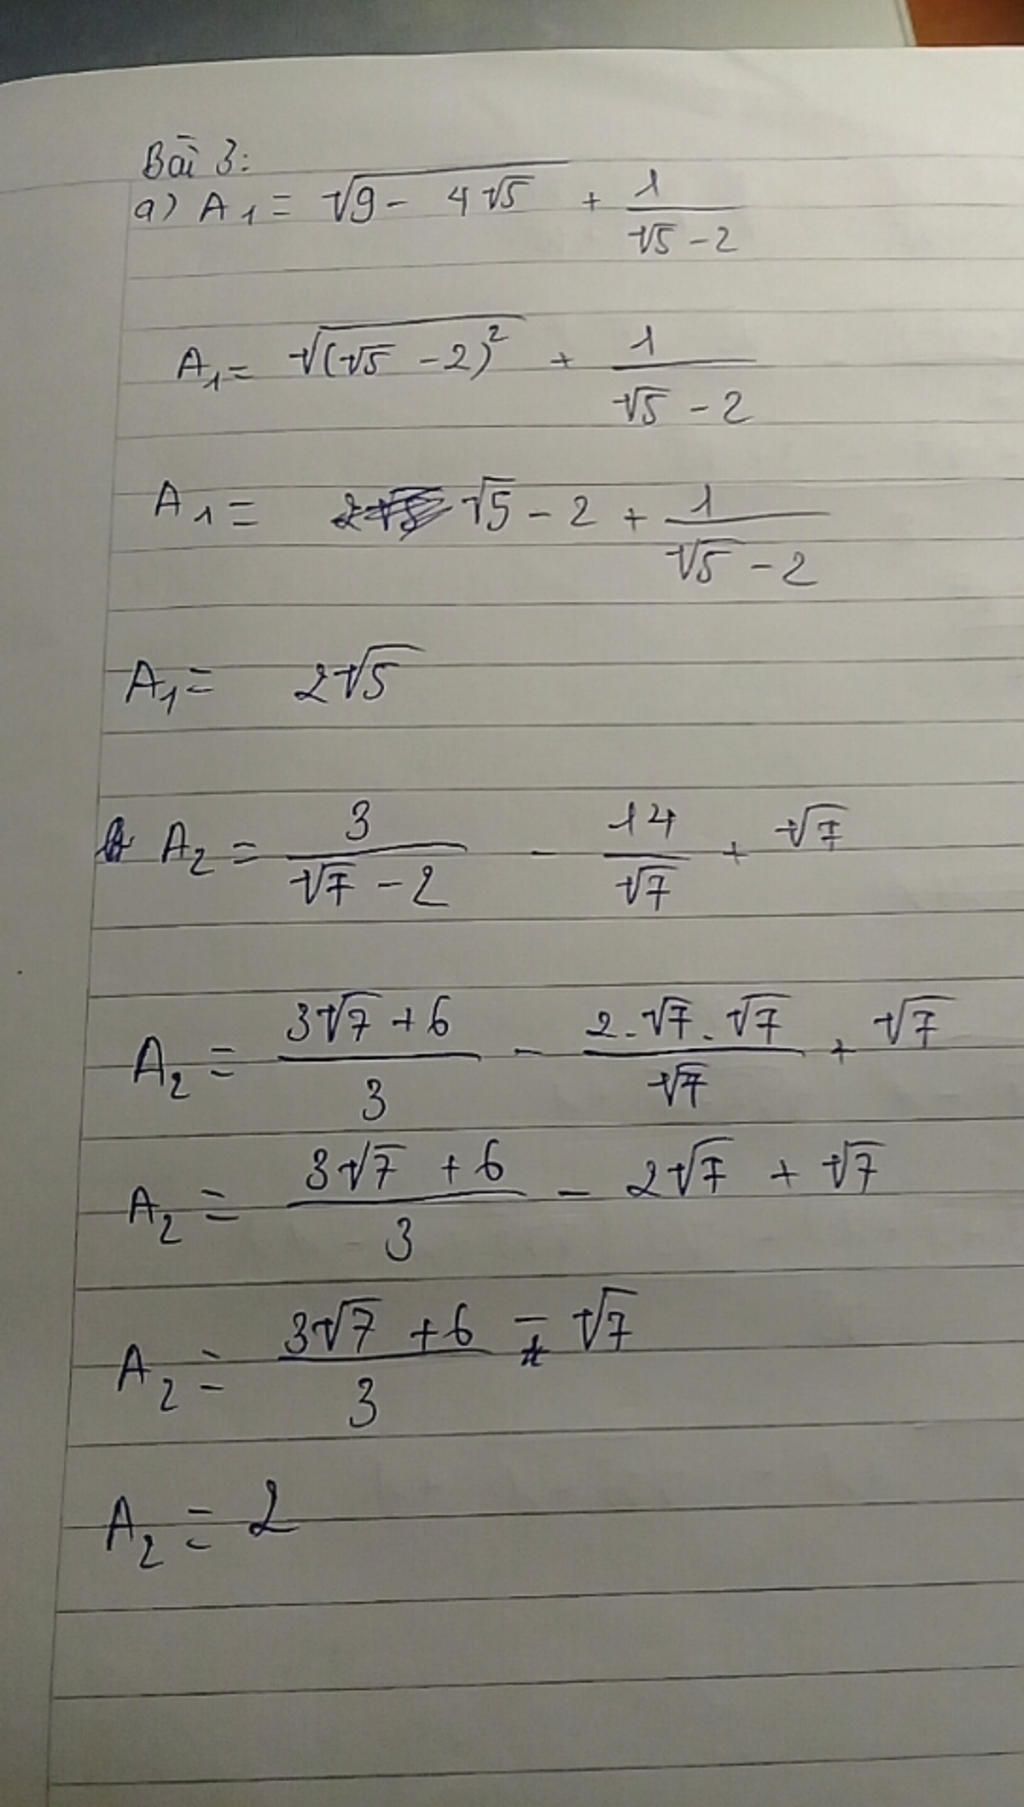 Bài 3:
a) A₁ = √(9 - 4√5) + 1/(√5 - 2)
A₁ = √((√5 - 2)²) + 1/(√5 - 2)
A₁ = √5 - 2 + 1/(√5 - 2)
A₁ = 2√5
A₂ = 3/(√7 - 2) - 14/√7 + √7
A₂ = (3√7 + 6)/3 - (2.√7.√7)/√7 + √7
A₂ = (3√7 + 6)/3 - 2√7 + √7
A₂ = (3√7 + 6)/3 - √7
A₂ = 2